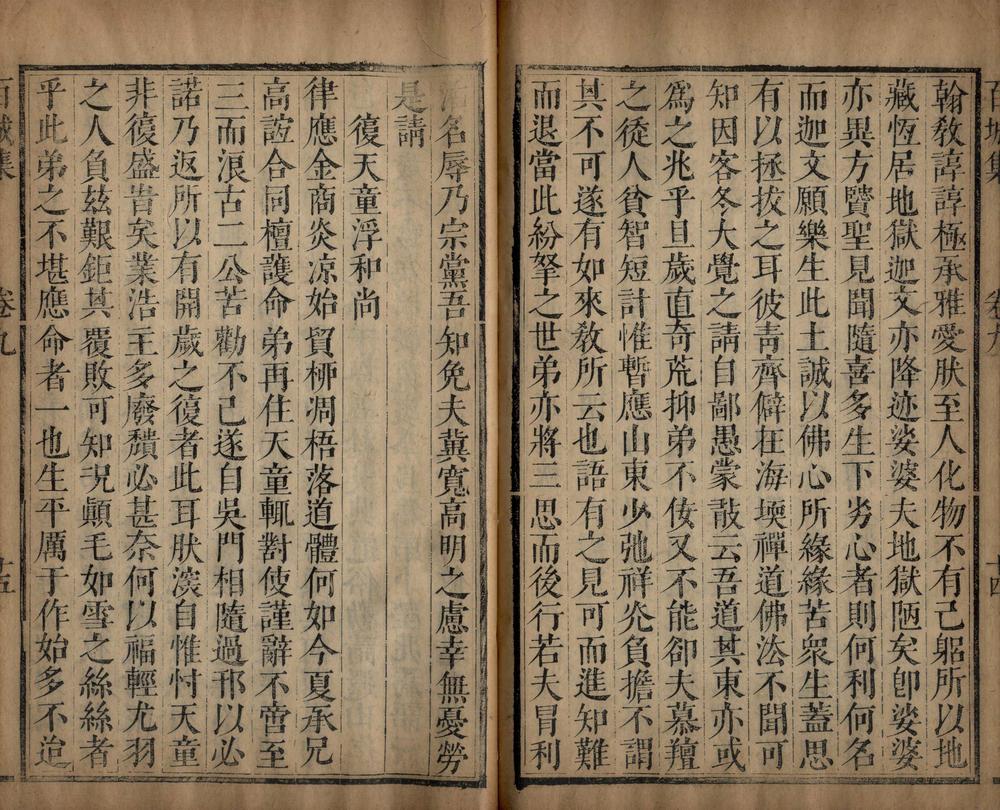 翰敎諄諄極承雅愛肰至人化物不有己軀所以地
藏恆居地獄迦文亦降迹娑婆夫地獄陋矣卽娑婆
亦異方贒聖見聞隨喜多生下劣心者則何利何名
而迦文願樂生此土誠以佛心所緣緣苦衆生蓋思
有以拯拔之耳彼靑齊僻在海堧禪道佛法不聞可
知因客冬大覺之請自鄙愚蒙敮云吾道其東亦或
爲之兆乎且歲直奇荒抑弟不佞又不能卻夫慕羶
之從人貧智短計惟暫應山東少弛祥公負擔不謂
其不可遂有如來敎所云也語有之見可而進知難
而退當此紛拏之世弟亦將三思而後行若夫冒利
名辱乃宗黨吾知免夫冀寬高明之慮幸無憂勞
是請
復天童浮和尚
律應金商炎凉始貿柳凋梧落道體何如今夏承兄
高誼合同檀護命弟再住天童輒對使謹辭不啻至
三而浪古二公苦勸不已遂自吳門相隨過邗以必
諾乃返所以有開歲之復者此耳肰淡自惟忖天童
非復盛旹矣業浩主多廢積必甚奈何以福輕尤羽
之人負玆艱鉅其覆敗可知況顚毛如雪之絲絲者
乎此弟之不堪應命者一也生平厲于作始多不迨
百城集
卷九
十五
百城集
十四